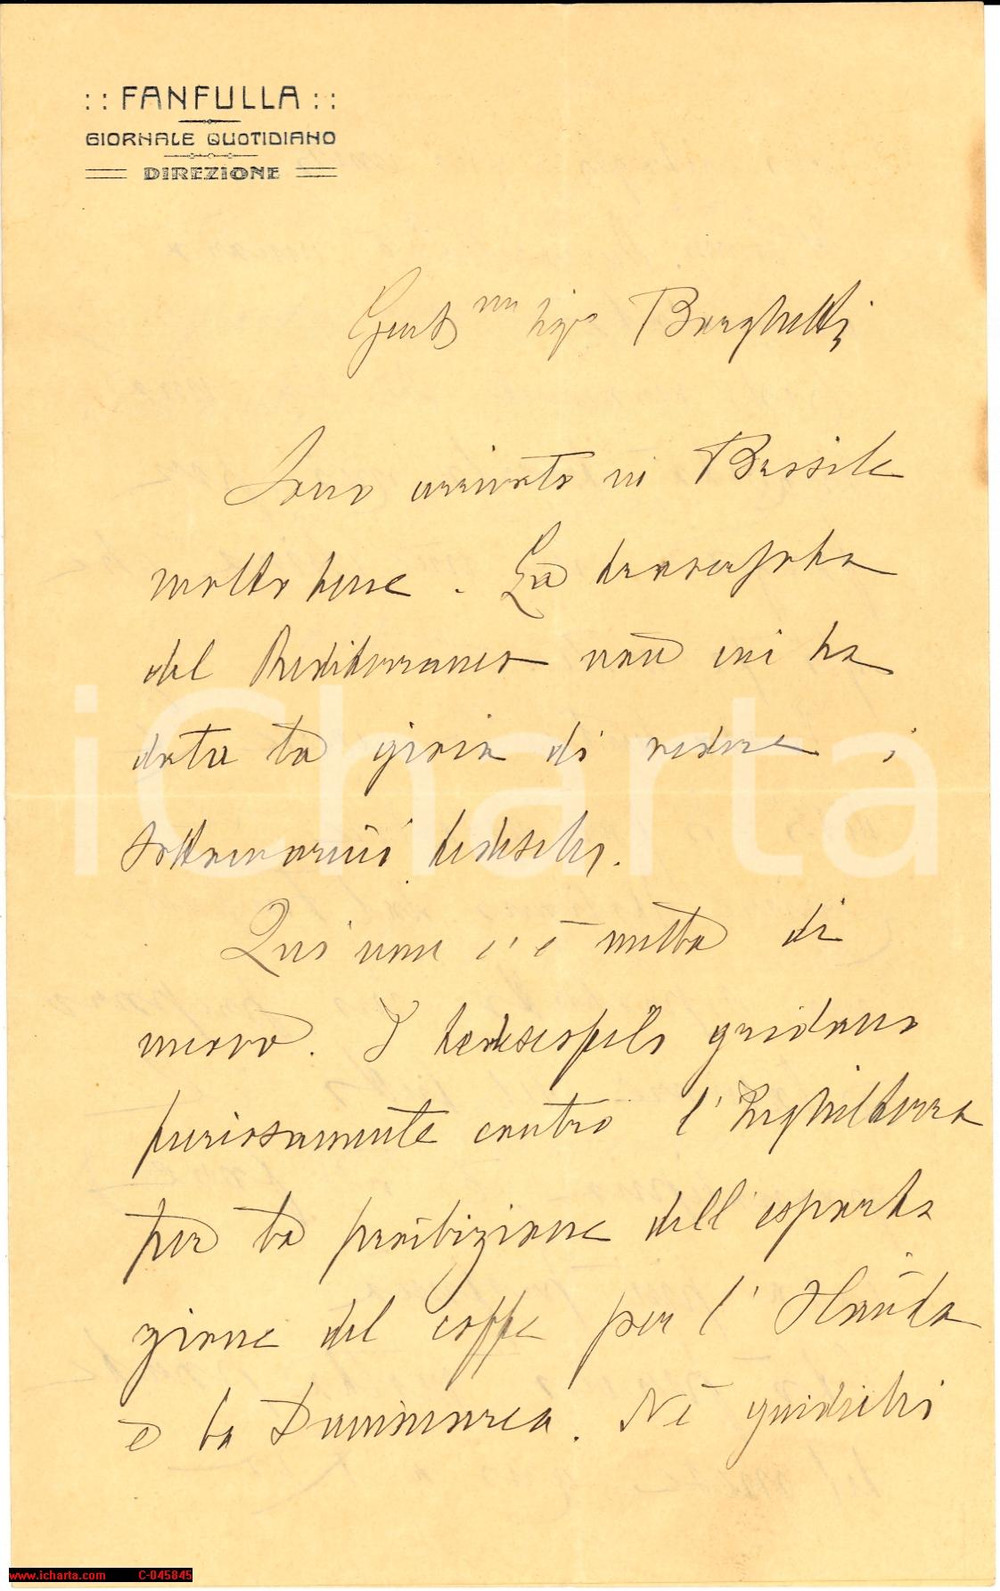 :: FANFULLA ::
GIORNALE QUOTIDIANO
DIREZIONE
Gent mo Sigr Borghetti
Sono arrivato in Brasile
molto bene. La traversata
del Mediterraneo non mi ha
data la gioia di vedere i
sottomarini tedeschi.
Qui non c'è nulla di
nuovo. I tedescofili gridano
furiosamente contro l'Inghilterra
per la proibizione dell'esporta
zione del caffe per l'Olanda
e la Danimarca. Nè
iCharta
www.icharta.com C-045845